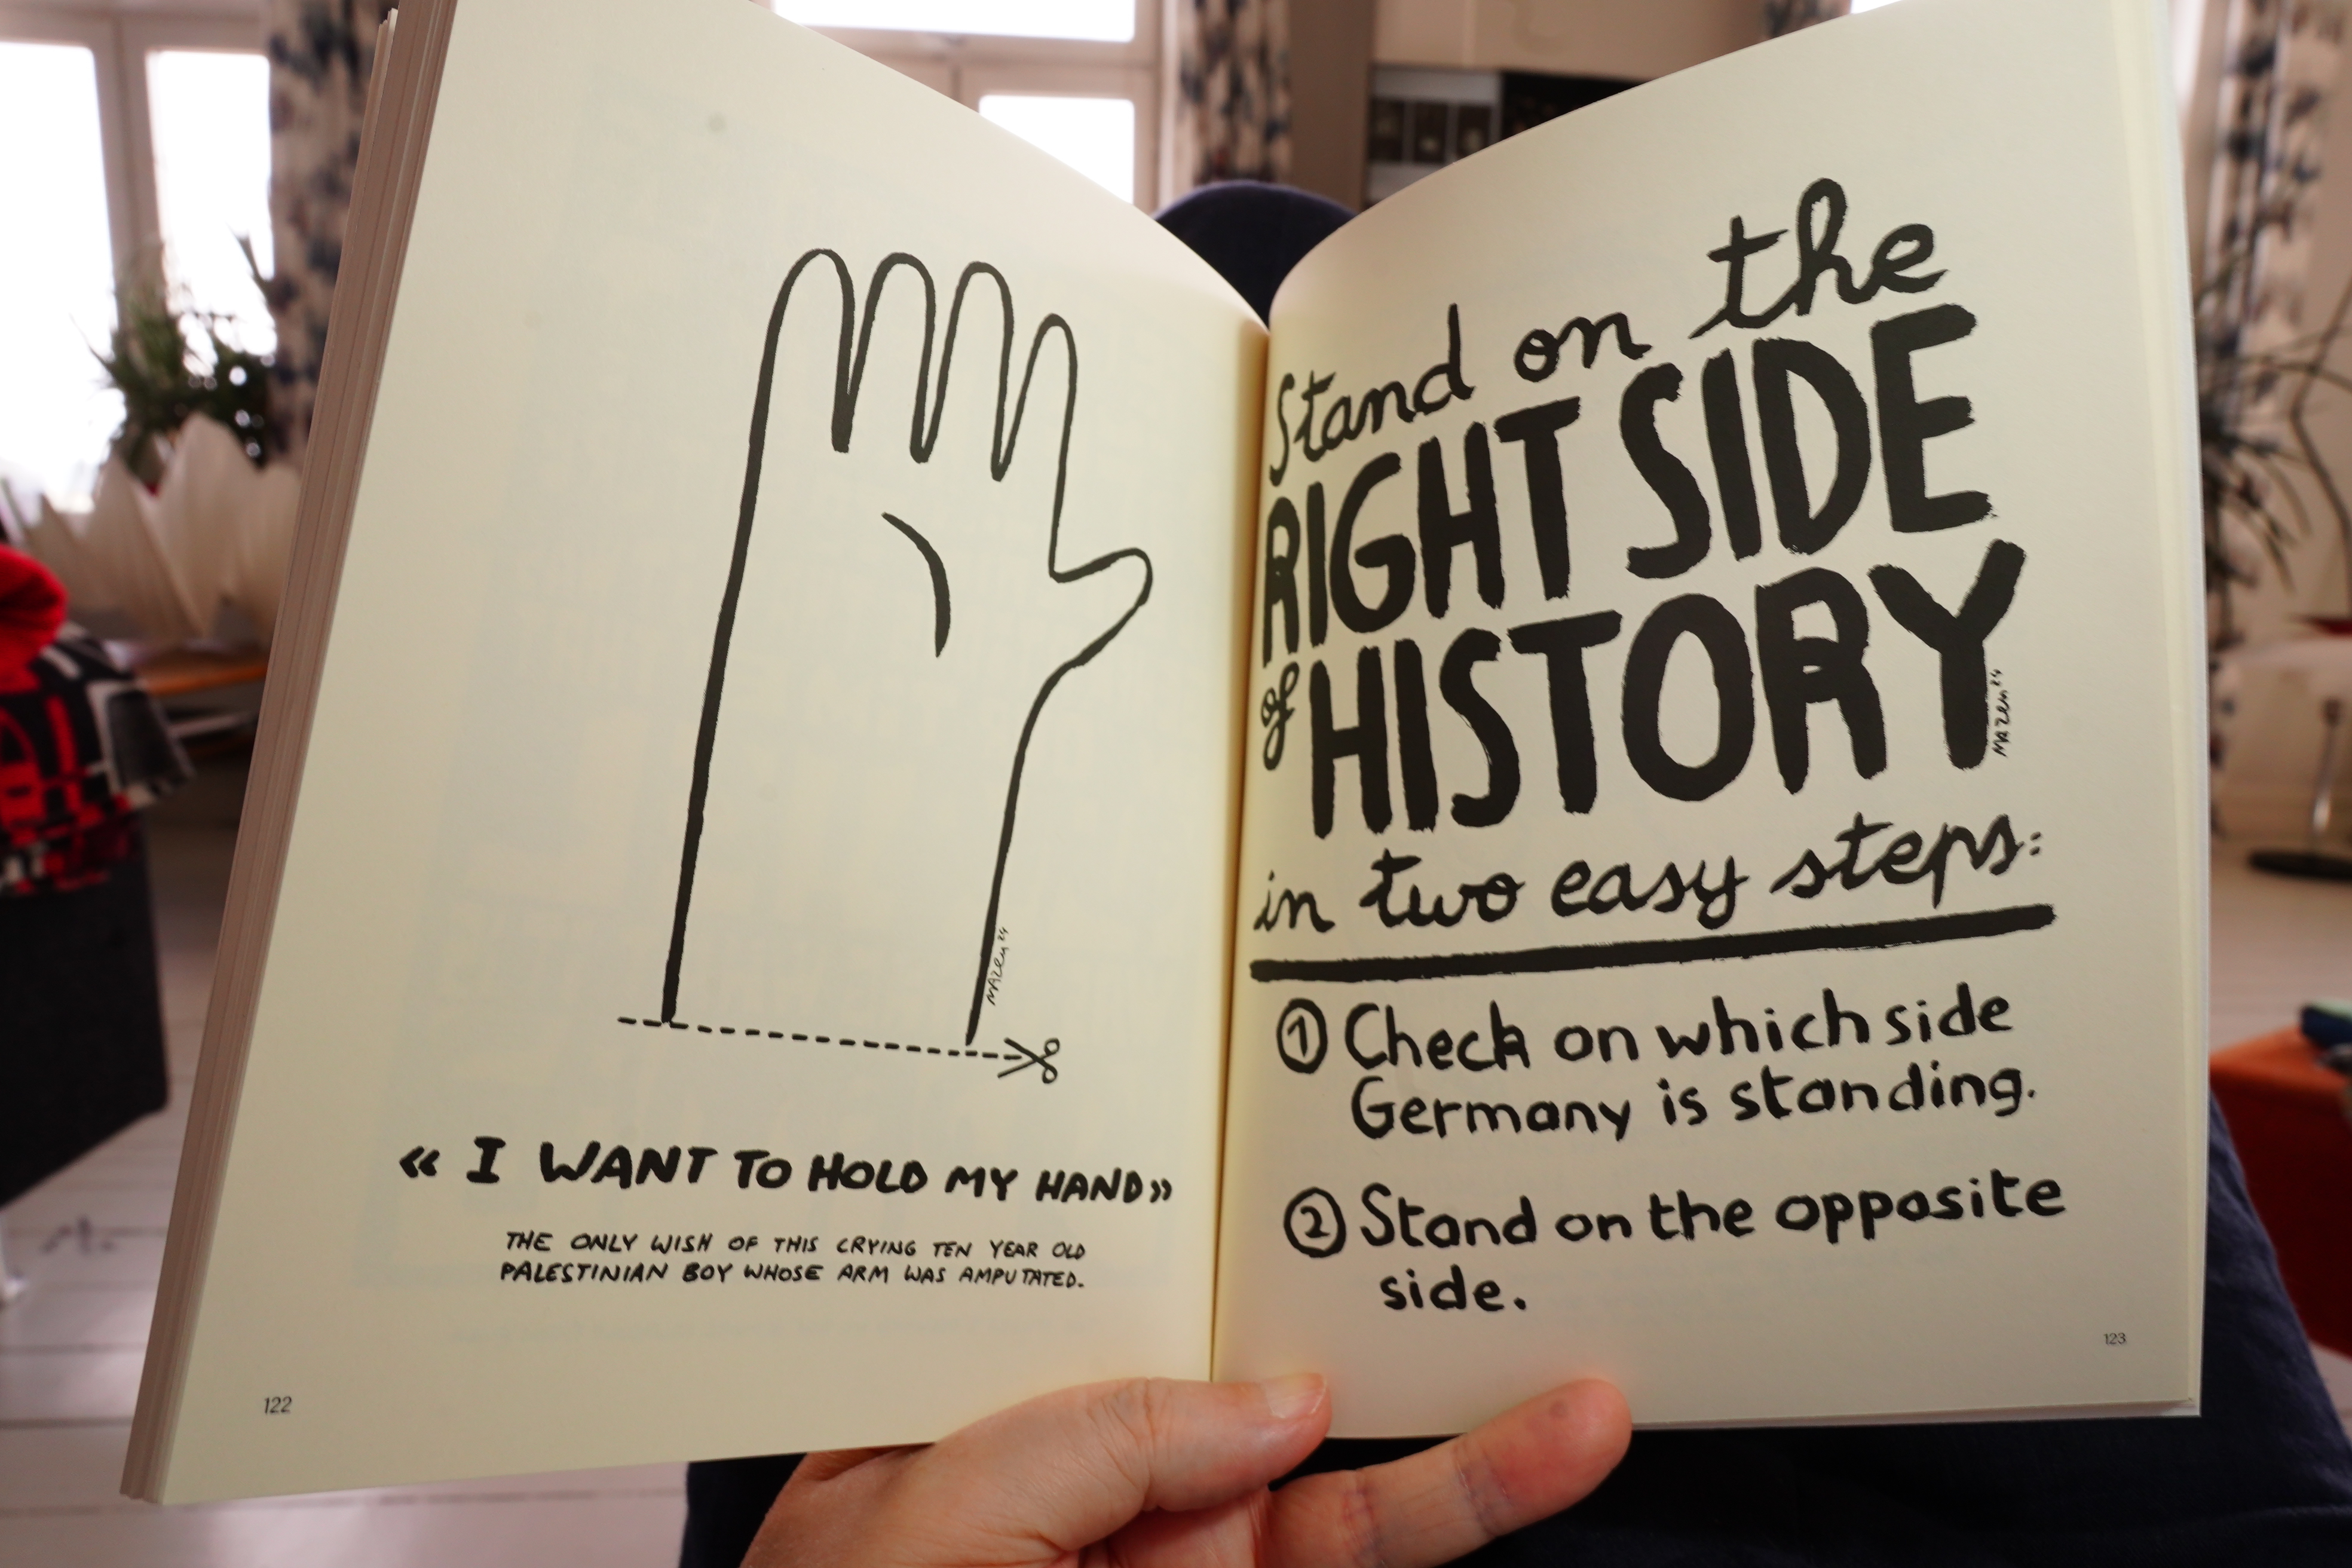 « I WANT TO HOLD MY HAND»
THE ONLY WISH OF THIS CRYING TEN YEAR OLD
PALESTINIAN BOY WHOSE ARM WAS AMPUTATED.
MAZEN 24
122
Stand on the
RIGHT SIDE
of HISTORY
MAZEN 24
in two easy steps:
① Check on which side
Germany is standing.
② Stand on the opposite
side.
123